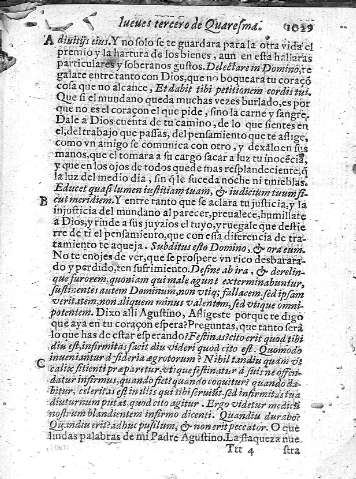 Iueues tercero de Quaresma. 1029
A diuitijs eius. Y no solo se te guardara para la otra vida el
premio y la hartura de los bienes, aun en esta hallaras
particulares y soberanos gustos. Delectare in Domino, re
galate entre tanto con Dios, que no boqueara tu coraçõ
cosa que no alcance, Et dabit tibi petitionem cordis tui.
Que si el mundano queda muchas vezes burlado, es por
que no es el coraçon el que pide, sino la carne y sangre.
Dale a Dios cuenta de tu camino, de lo que sientes en
el, del trabajo que passas, del pensamiento que te aflige,
como vn amigo se comunica con otro, y dexalo en sus
manos, que el tomara a su cargo sacar a luz tu inocẽcia,
y que en los ojos de todos quede mas resplandeciente, q̃
la luz del medio dia, sin q̃ le suceda noche ni tinieblas.
Educet quasi lumen iustitiam tuam, & iudicium tuum si-
cut meridiem. Y entre tanto que se aclara tu justicia, y la
B injusticia del mundano al parecer, preualece, humillate
a Dios, y rinde a sus juyzios el tuyo, y ruegale que destie
rre de ti el pensamiento, que con esta diferencia de tra-
tamiento te aqueja. Subditus esto Domino, & ora eum.
No te enojes de ver, que se prospere vn rico desbarara-
do y perdido, ten sufrimiento. Desine ab ira, & derelin-
que furorem, quoniam qui male agunt exterminabuntur,
sustinentes autem Dominum, non vtiq; fallacem, sed ipsam
veritatem, non aliquem minus valentem, sed vtique omni-
potentem. Dixo alli Agustino, Afligeste porque te digo
que aya en tu coraçon espera? Preguntas, que tanto sera
lo que has de estar esperando? Festinas, cito erit quod tibi
diu est, infirmitas facit diu videri quod cito est. Quomodo
inueniantur desideria ægrotorum? Nihil tandiu quàm vt
C calix sitienti præparetur, vtique festinatur à suis ne offen-
datur infirmus, quando fiet? quando coquitur? quando da-
bitur, celeritas est in illis qui tibi seruiunt, sed infirmitas tua
diuturnum putas quod cito agitur. Ergo videtur medicũ
nostrum blandientem infirmo dicenti. Quandiu durabo?
Quandiu erit? adhuc pusillum, & non erit peccator. O que
lindas palabras de mi Padre Agustino. La flaqueza nue
Ttt 4 stra